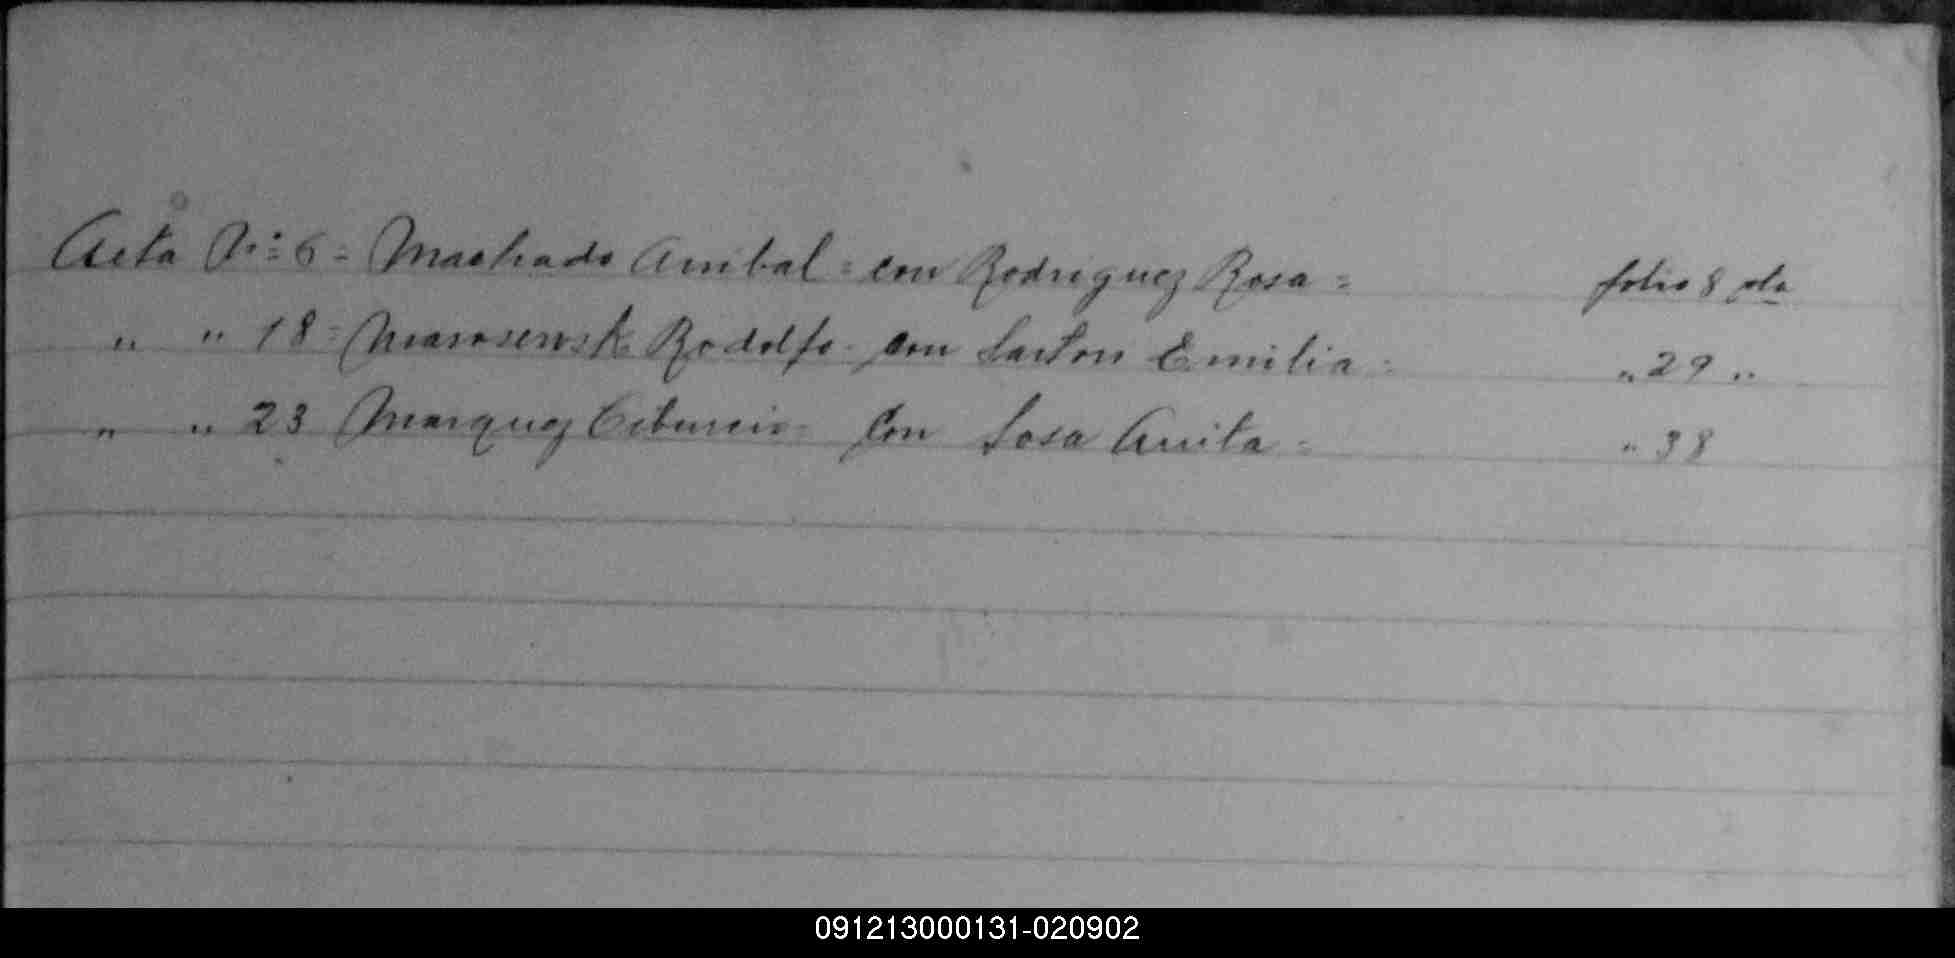 Acta Nº 6 = Machado Anibal = con Rodriguez Rosa = folio 8 vta
" " 18 = Rodolfo con Emilia = " 29 "
" " 23 Marquez Tiburcio con Sosa Anita = " 38
091213000131-020902